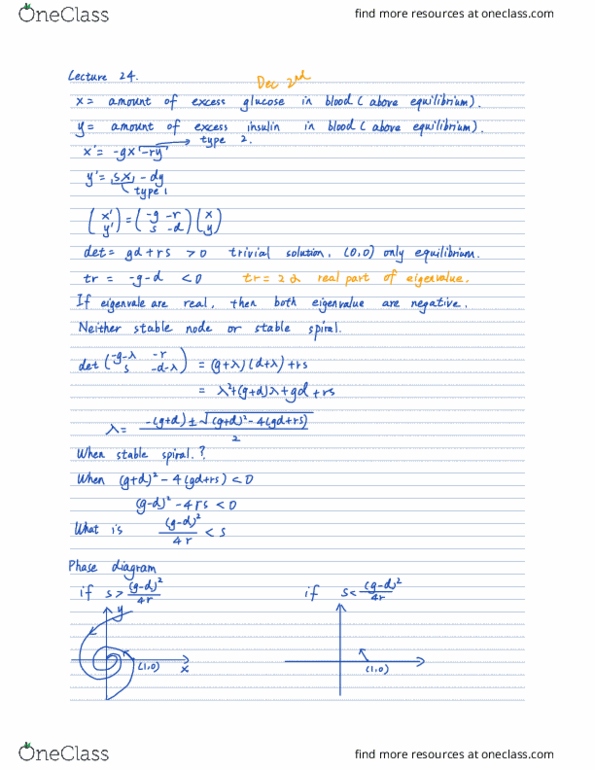 OneClass
find more resources at oneclass.com
Lecture 24.
Dec 2nd
x = amount of excess glucose in blood (above equilibrium).
y = amount of excess insulin in blood (above equilibrium).
x' = -gx -ry → type 2.
y' = sx - dy
type 1
(x' y') = (-g -r s -d)(x y)
det = gd + rs > 0 trivial solution. (0,0) only equilibrium.
tr = -g-d < 0 tr = 2α real part of eigenvalue.
If eigenvale are real, then both eigenvalue are negative.
Neither stable node or stable spiral.
det (-g-λ -r s -d-λ) = (g+λ)(d+λ)+rs
= λ²+(g+d)λ+gd+rs
λ = -(g+d)±√(g+d)²-4(gd+rs) / 2
When stable spiral.?
When (g+d)² - 4(gd+rs) < 0
(g-d)² - 4rs < 0
What is (g-d)²/4r < s
Phase diagram
if s > (g-d)²/4r if s < (g-d)²/4r
y
(1,0) x (1,0)
OneClass
find more resources at oneclass.com